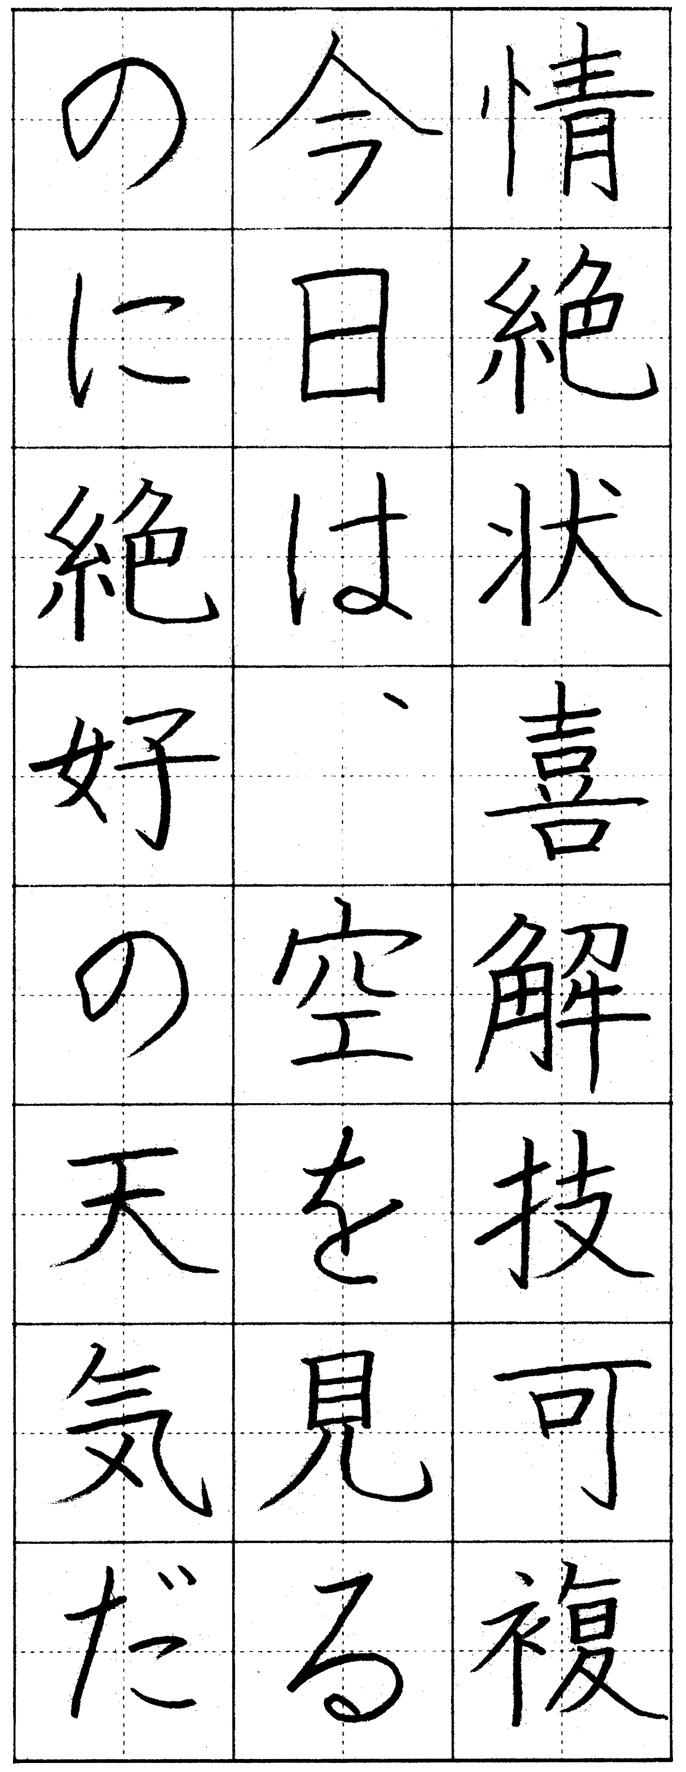 情絶状喜解技可複
今日は、空を見る
のに絶好の天気だ